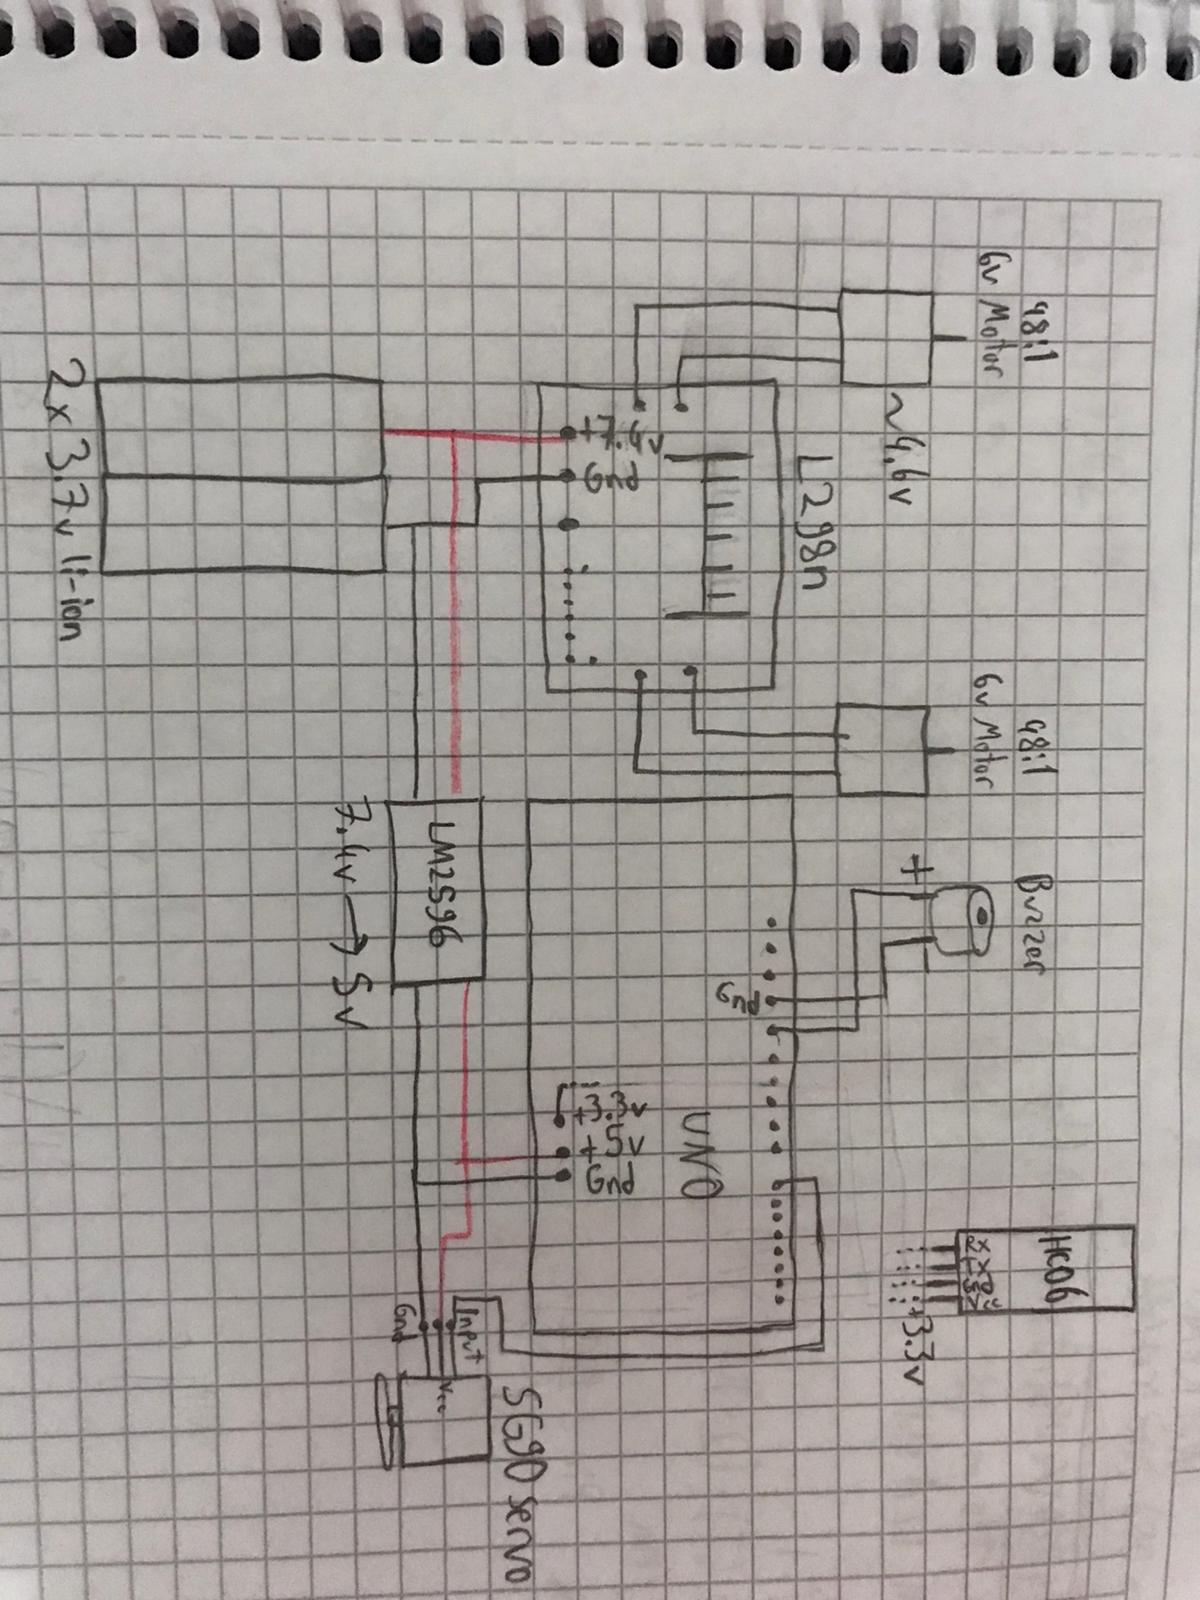 48:1
6v Motor
~4,6v
L298n
+7.4v
Gnd
2x 3.7v li-ion
48:1
6v Motor
Buzzer
+
-
Gnd
UNO
+3.3v
+5v
Gnd
LM2596
7.4v → 5v
HC06
Rx
Tx
Vcc
+3.3v
Input
Vcc
Gnd
SG90 servo